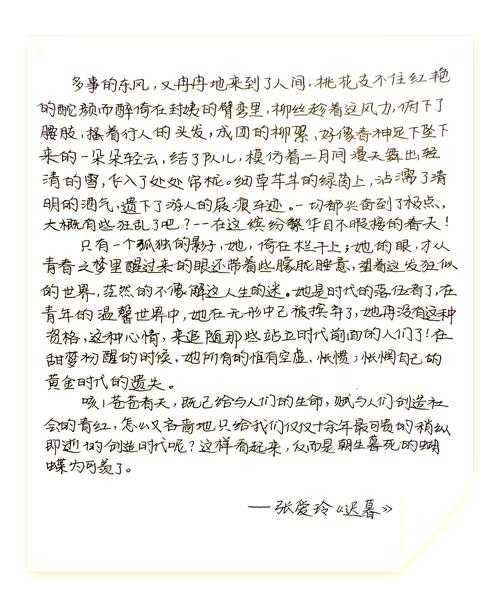 多事的东风，又冉冉地来到了人间，桃花支不住红艳
的酡颜而醉倚在封姨的臂弯里，柳丝趁着这风力，俯下了
腰肢，搔着行人的头发，成团的柳絮，好像春神足下坠下
来的一朵朵轻云，结了队儿，模仿着二月间漫天舞出轻
清的雪，飞入了处处帘栊。细草芊芊的绿茵上，沾濡了清
明的酒气，遗下了游人的屐痕车迹。一切都兴奋到了极点，
大概有些狂乱了吧？--在这缤纷繁华目不暇接的春天！
只有一个孤独的影子，她，倚在栏干上；她的眼，才从
青春之梦里醒过来的眼还带着些朦胧睡意，望着这发狂似
的世界，茫然的不像解这人生的谜。她是时代的落伍者了，在
青年的温馨世界中，她在无形中已被摈弃了，她再没有这种
资格，这种心情，来追随那些站立时代前面的人们了！在
甜梦初醒的时候，她所有的惟有空虚，怅惘；怅惘自己的
黄金时代的遗失。
咳！苍苍者天，既已给与人们的生命，赋与人们创造社
会的青红，怎么又吝啬地只给我们仅仅十余年最可贵的稍纵
即逝的创造时代呢？这样看起来，反而是朝生暮死的蝴
蝶为可羡了。
——张爱玲《迟暮》